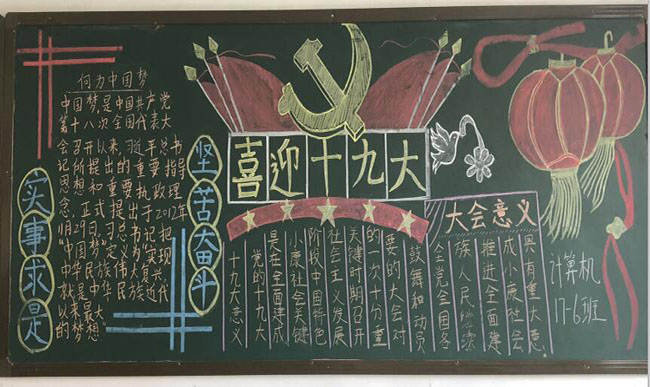 何为中国梦
中国梦,是中国共产党
第十八次全国代表大
会召开以来,习近平总书
记所提出的重要指导
思想和重要执政理
念,正式提出于2012年
11月29日。习总书记把
"中国梦"定义为"实现
中华民族伟大复兴,
就是中华民族近代
实事求是
坚苦奋斗
喜迎十九大
十九大意义
党的十九大
是在全面建成
小康社会关键
阶段中国特色
社会主义发展
关键时期召开
的一次十分重
要的大会对
鼓舞和动员
全党全国各
族人民继续
推进全面建
成小康社会
具有重大意
大会意义
计算机
17-6班